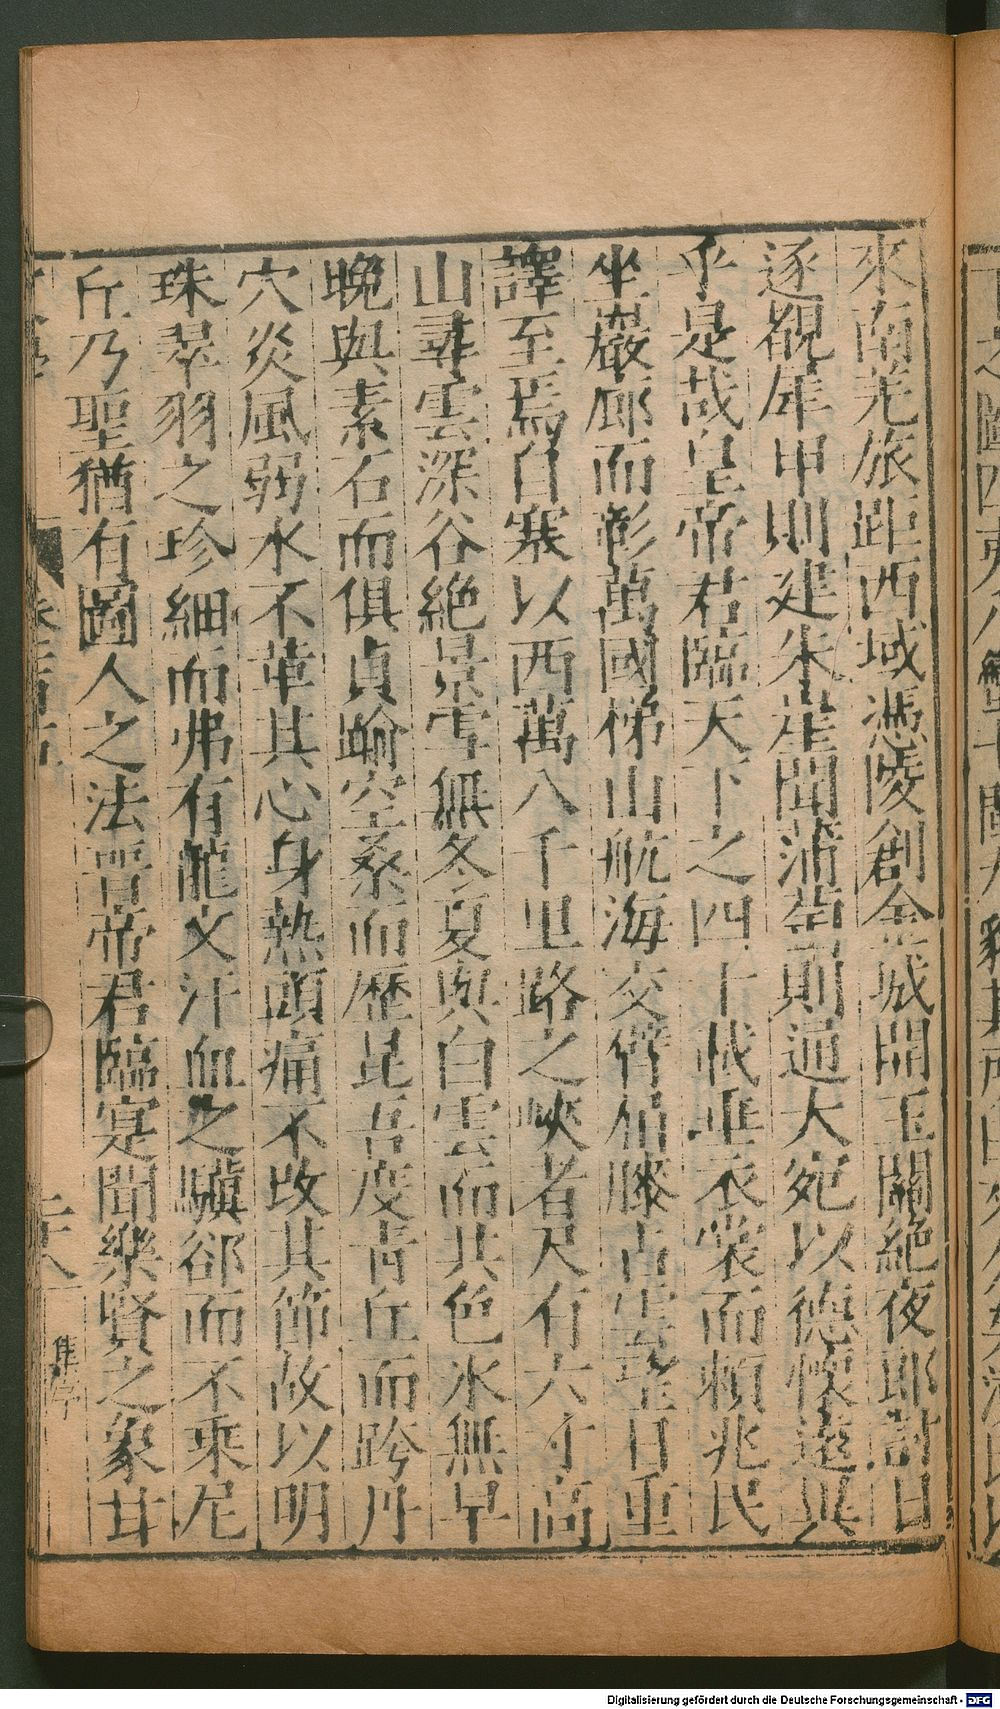 來南羌旅距西域憑陵創金城開玉關絕夜郎討日
逐覩犀甲則建朱崖聞蒲萄則通大宛以德懷遠異
乎是哉皇帝君臨天下之四十載垂衣裳而賴兆民
坐巖廊而彰萬國梯山航海交臂屈膝占雲望日重
譯至焉自塞以西萬八千里路之峽者尺有六寸高
山尋雲深谷絕景雪無冬夏與白雲而共色冰無早
晚與素石而俱貞踰空桑而歷昆吾度青丘而跨丹
穴炎風弱水不革其心身熱頭痛不改其節故以明
珠翠羽之珍細而弗有龍文汗血之驥郤而不乘尼
丘乃聖猶有圖人之法晉帝君臨寔聞樂賢之象甘
之圖四夷八
Digitalisierung gefördert durch die Deutsche Forschungsgemeinschaft - DFG